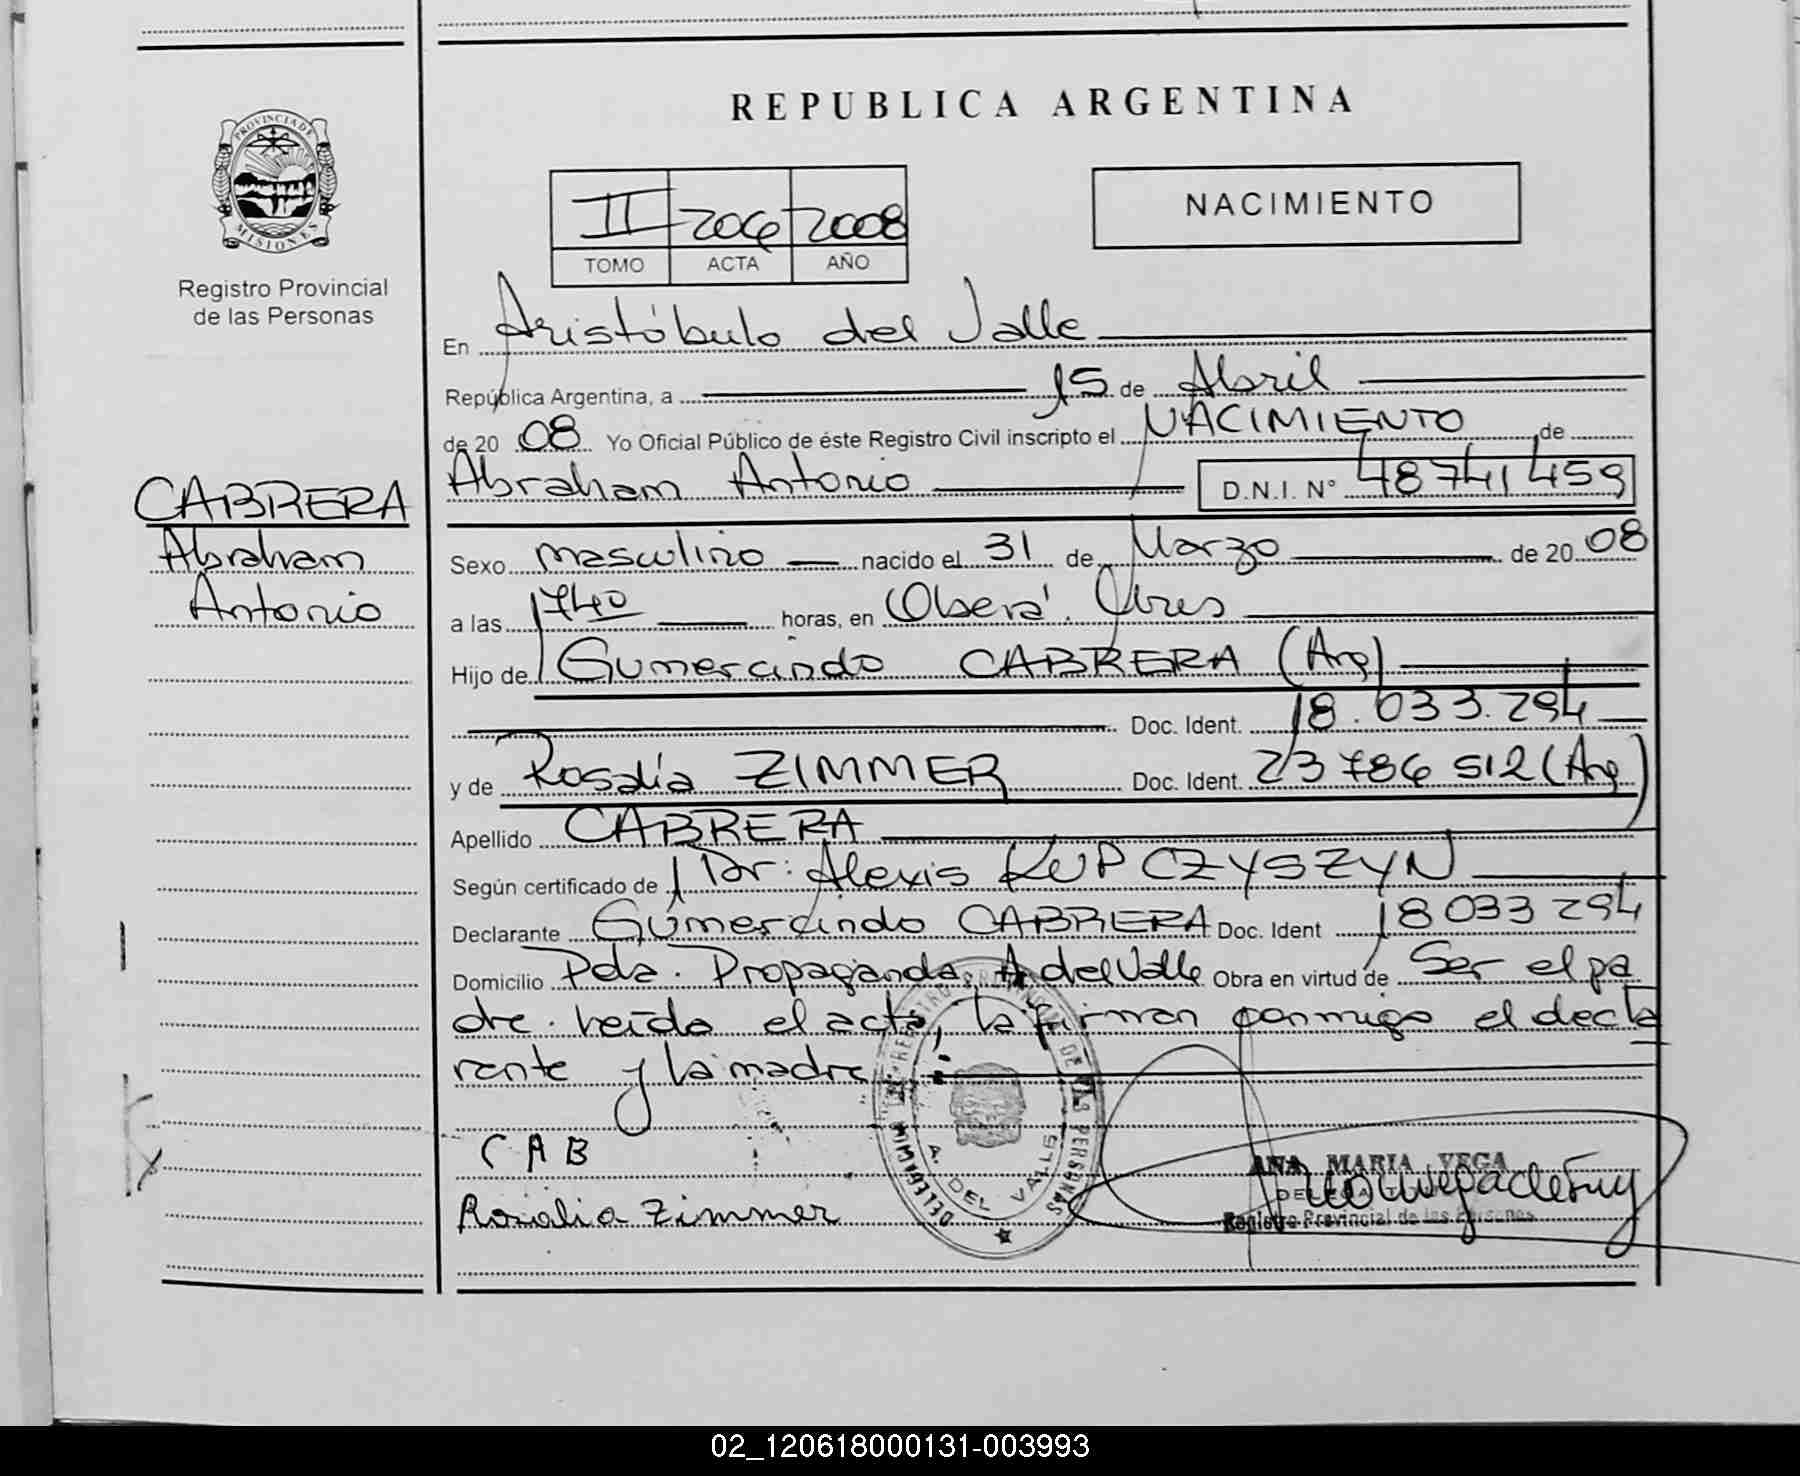 REPUBLICA ARGENTINA
PROVINCIA DE
MISIONES
Registro Provincial
de las Personas
II 206 2008
TOMO ACTA AÑO
NACIMIENTO
En Aristóbulo del Valle
República Argentina, a 15 de Abril
de 20 08 Yo Oficial Público de éste Registro Civil inscripto el NACIMIENTO de
Abraham Antonio D.N.I. N° 48741459
CABRERA
Abraham
Antonio
Sexo masculino nacido el 31 de Marzo de 20 08
a las 1740 horas, en Oberá.
Hijo de Gumercindo CABRERA (Arg)
Doc. Ident. 18.033.294
y de Rosalía ZIMMER Doc. Ident. 23786512 (Arg)
Apellido CABRERA
Según certificado de Dr: Alexis KUPCZYSZYN
Declarante Gumercindo CABRERA Doc. Ident 18033294
Domicilio Pda. Propaganda A del Valle Obra en virtud de Ser el pa
dre. Leída el acta, la firman conmigo el decla
rante y la madre
CAB
Rosalia Zimmer
REGISTRO PROVINCIAL DE LAS PERSONAS
A. DEL VALLE
ANA MARIA VEGA
Registro Provincial de las Personas
02_120618000131-003993